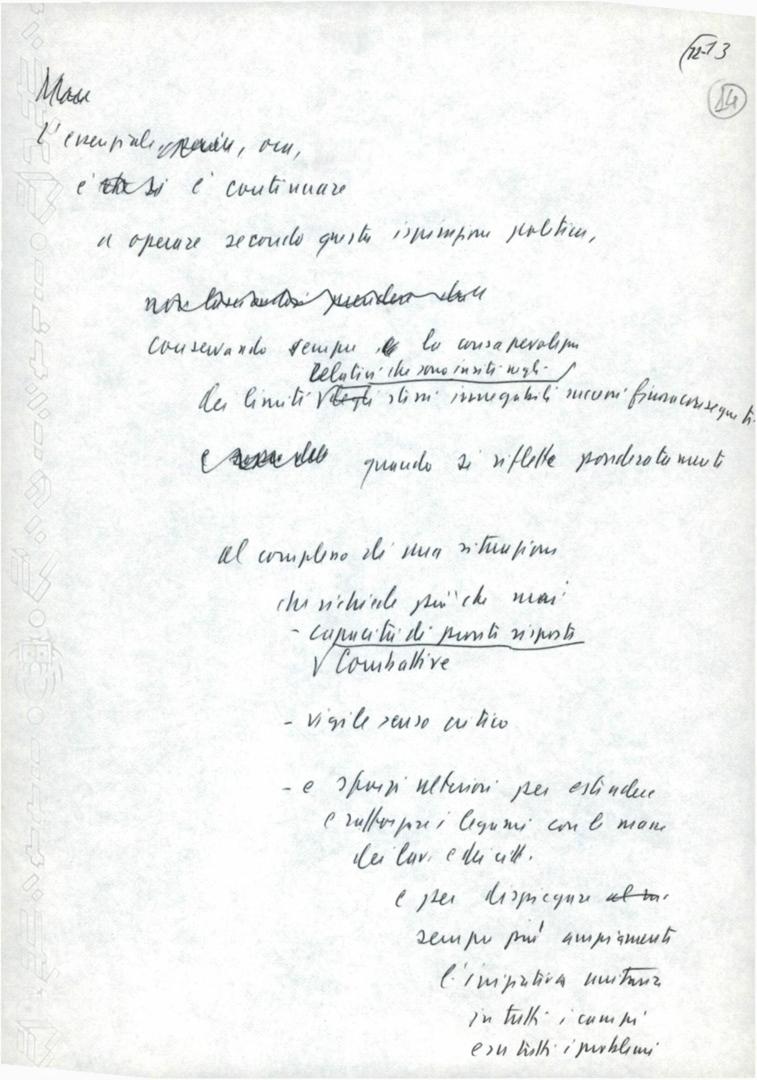 12-13
14
Ma
l'essenziale, ora,
è è continuare
a operare secondo questa ispirazione politica,
conservando sempre la consapevolezza
relativi che sono insiti negli
dei limiti degli stessi innegabili successi finora conseguiti
e quando si riflette ponderatamente
al complesso di una situazione
che richiede più che mai
- capacità di pronte risposte
√ combattive
- vigile senso critico
- e sforzi ulteriori per estendere
e rafforzare i legami con le masse
dei lav. e dei citt.
e per dispiegare al m.
sempre più ampiamente
l'iniziativa unitaria
in tutti i campi
e su tutti i problemi